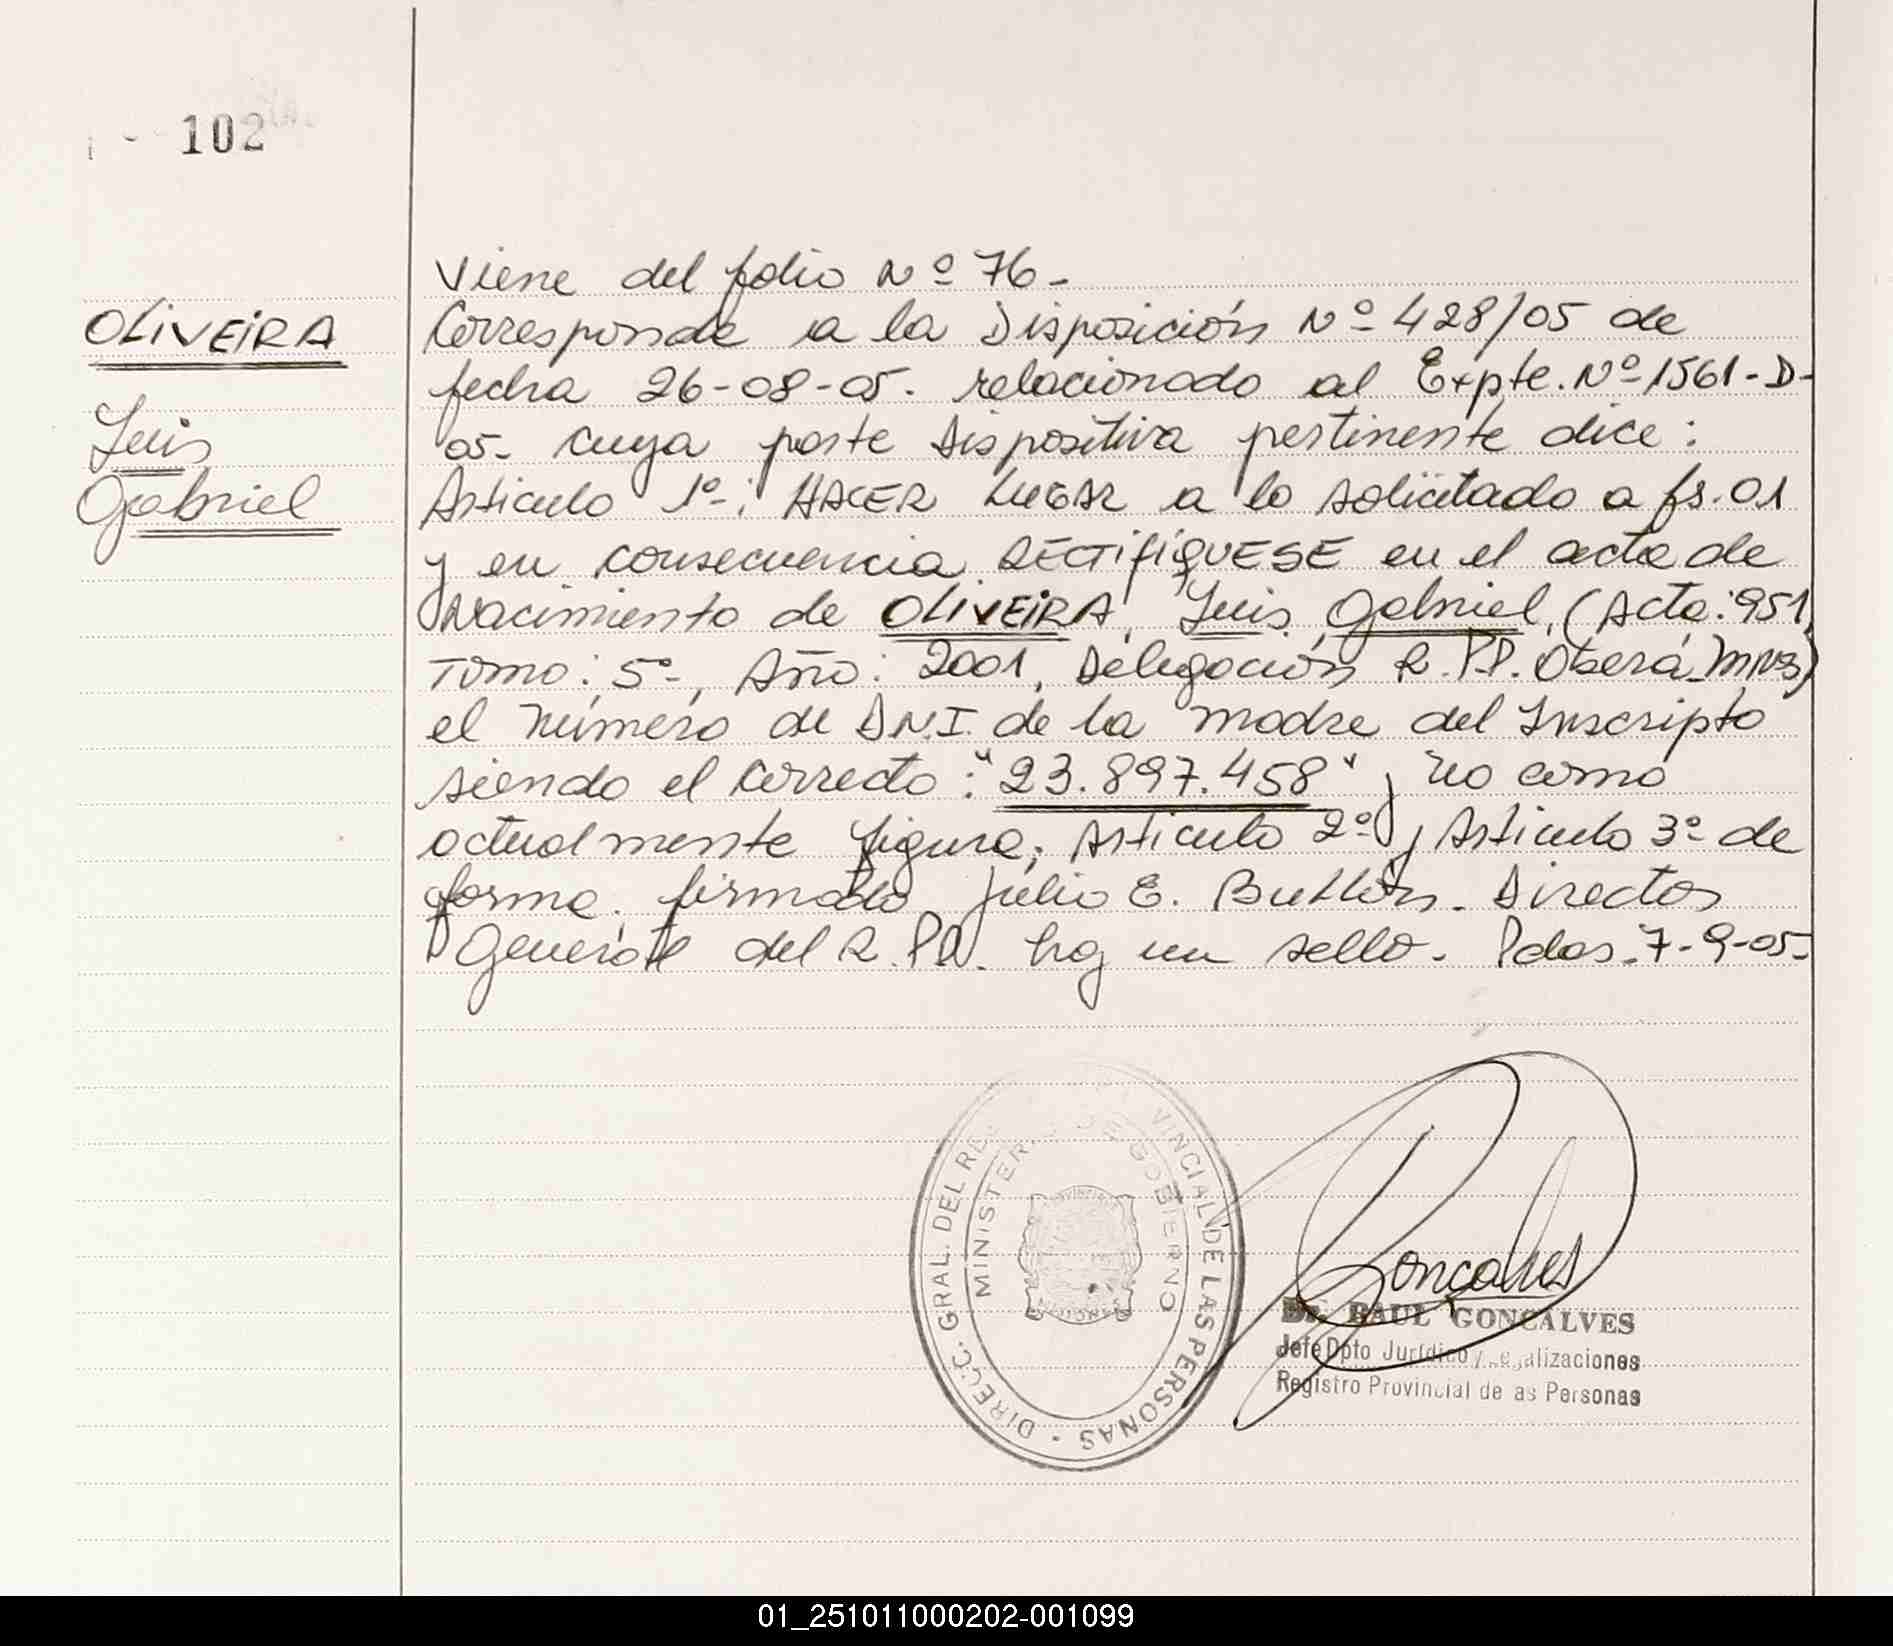 102
OLIVEIRA
Luis
Gabriel
Viene del folio Nº 76-
Corresponde a la Disposición Nº 428/05 de
fecha 26-08-05. relacionado al Expte. Nº 1561-D-
05- cuya parte dispositiva pertinente dice:
Articulo 1º-: HACER LUGAR a lo solicitado a fs. 01
y en consecuencia RECTIFIQUESE en el acta de
Nacimiento de OLIVEIRA, Luis Gabriel, (Acta: 951,
Tomo: 5º-, Año: 2001, Delegación R.P.P. Oberá-Mnes)
el número de D.N.I. de la madre del Inscripto
siendo el correcto: "23.897.458" y no como
actualmente figura, Articulo 2º y Articulo 3º de
forma. firmado Julio E. Directos
General del R.P.P. hay un sello. Pdas. 7-9-05-
DIRECC. GRAL. DEL VINCIAL DE LAS PERSONAS
MINISTERIO DE GOBIERNO
Goncalves
Dr. RAUL GONCALVES
Jefe Dpto Jurídico
Registro Provincial de as Personas
01_251011000202-001099